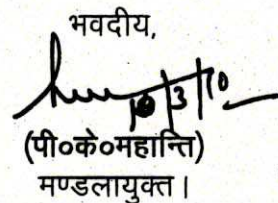 भवदीय,
10/3/10
(पी०के०महान्ति)
मण्डलायुक्त।